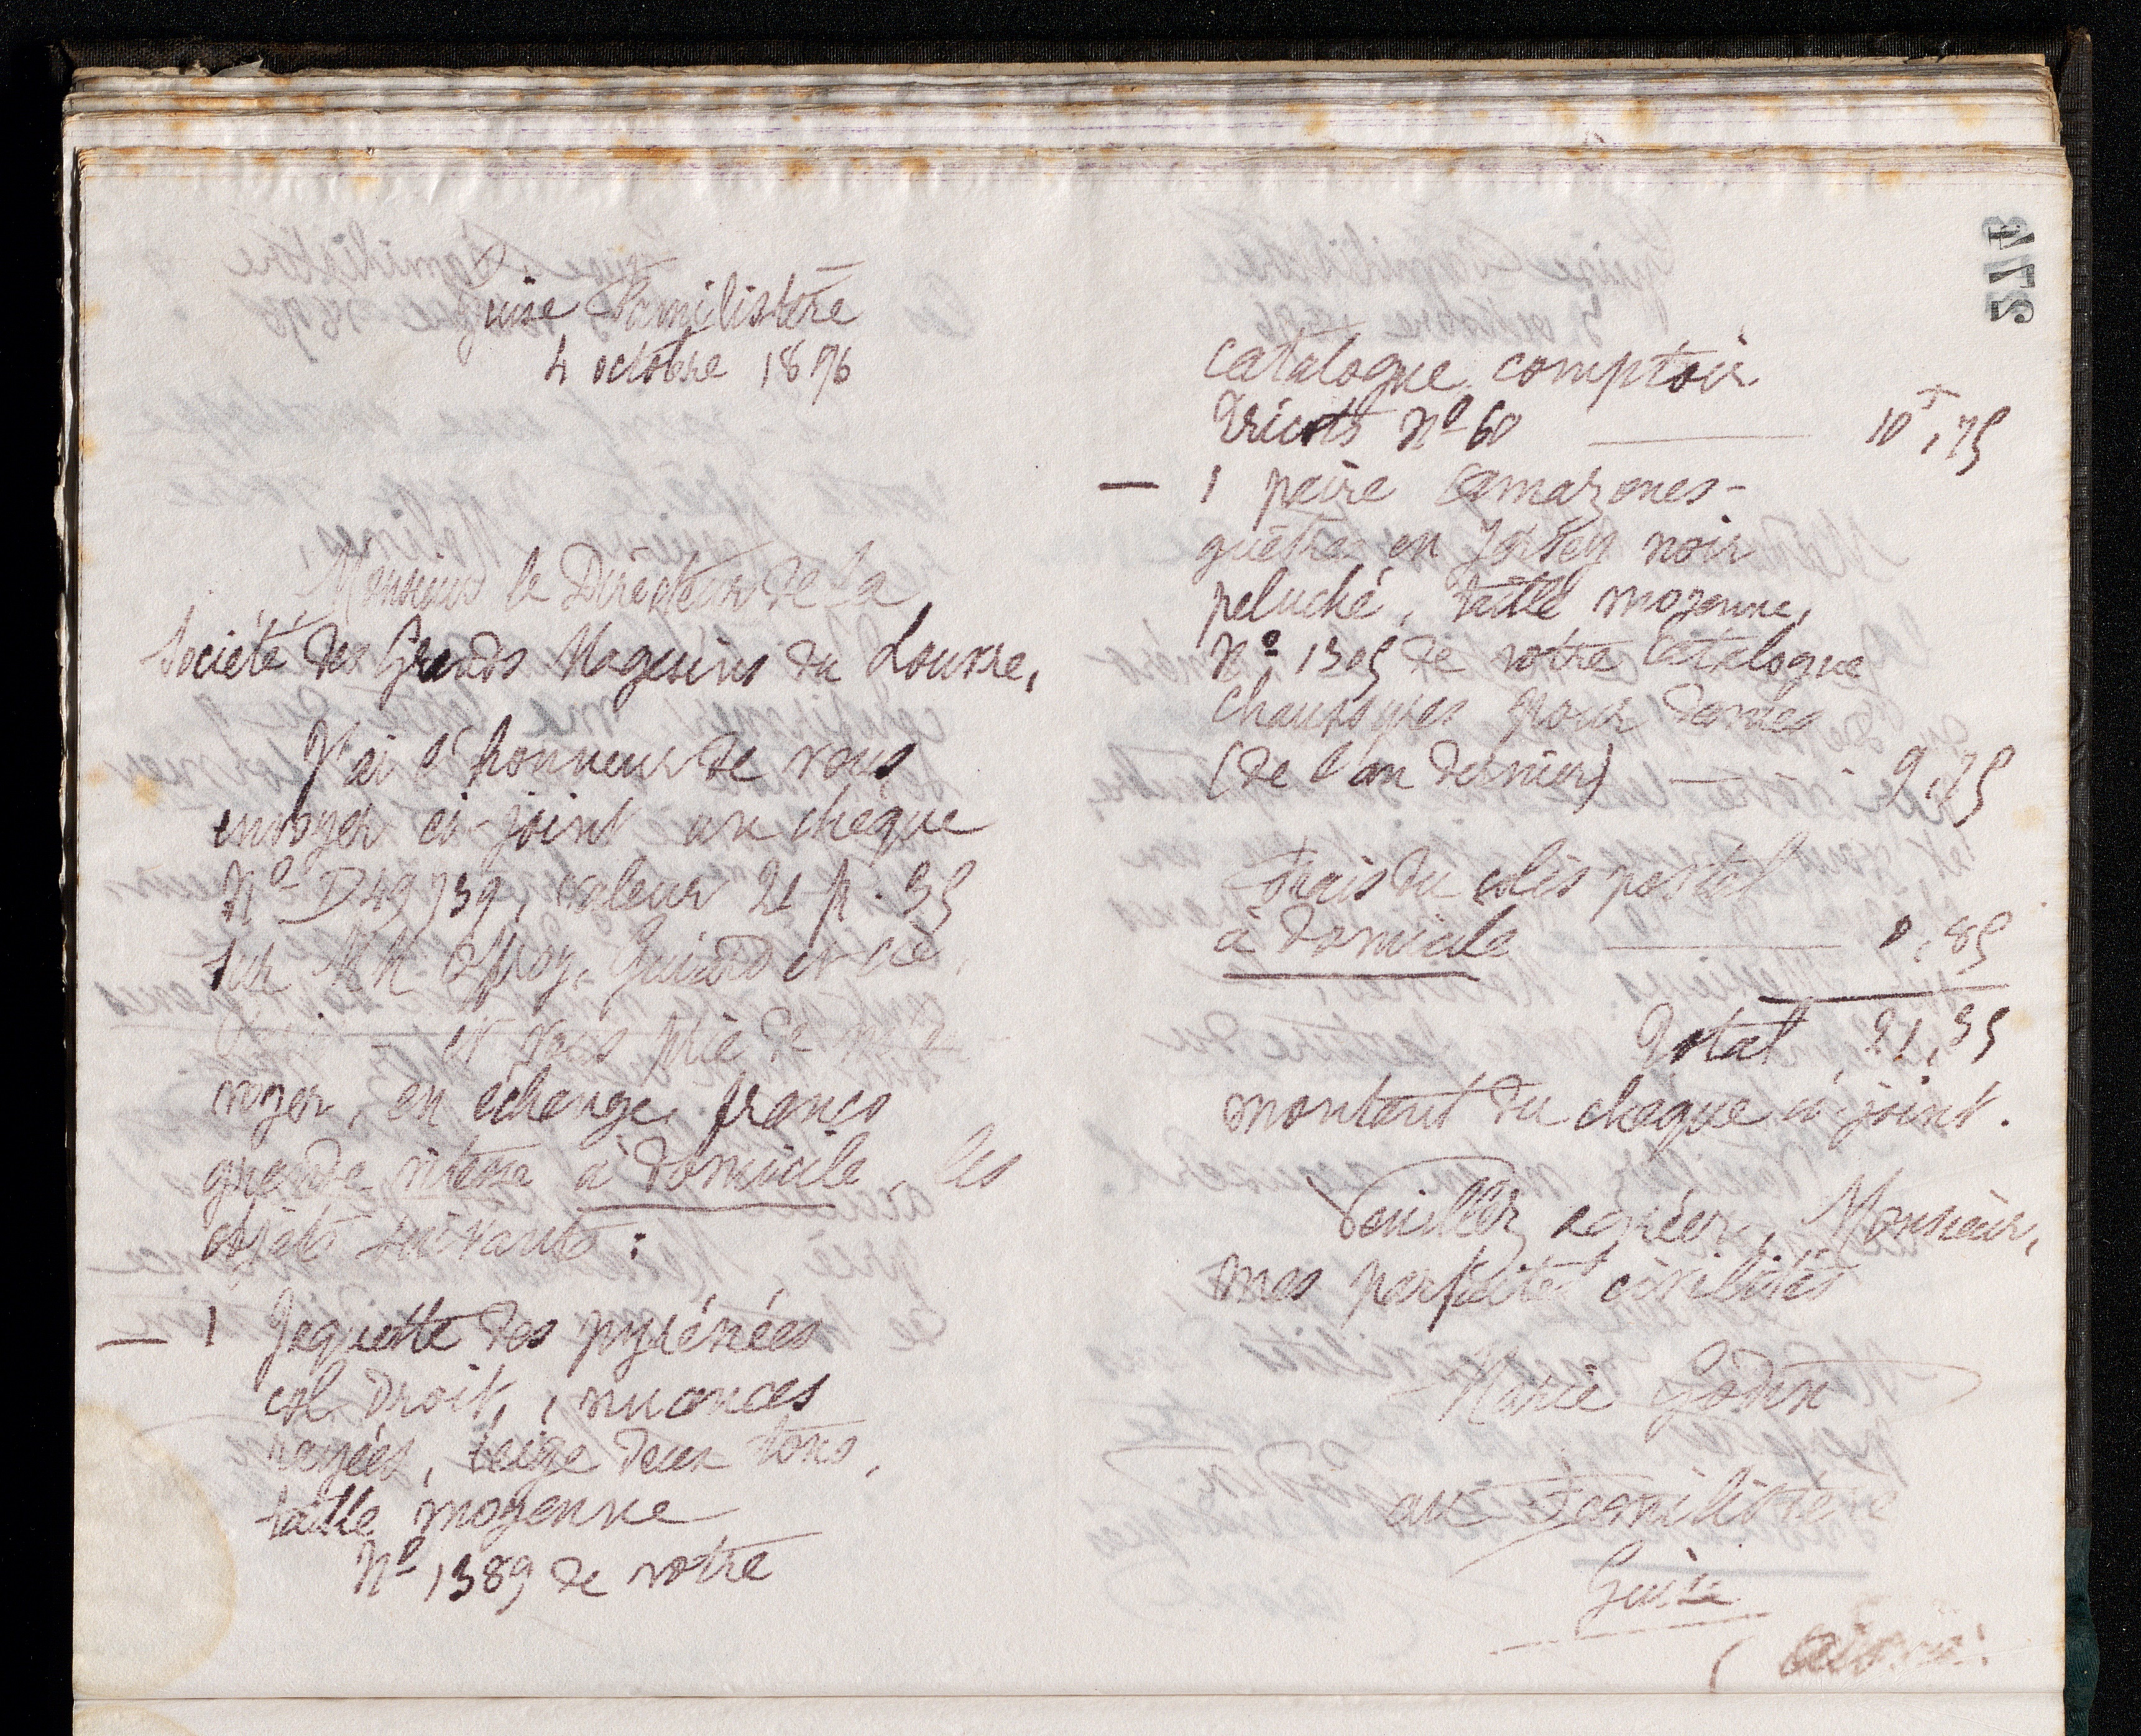 Guise Familistère
4 octobre 1896
Monsieur le Directeur de la
Société des Grands Magasins du Louvre,
J'ai l'honneur de vous
envoyer ci-joint un chèque
Nº D49739, valeur 21 fr. 35
sur MM Offroy, Guiard et Cie,
et vous prie de m'en
voyer, en échange, franco
grande vitesse à domicile, les
objets suivants :
— 1 Jaquette des pyrénées
col droit, nuances
rayées, beige deux tons,
taille moyenne
Nº 1389 de votre
catalogue comptoir
Tricots Nº 60 — 10f,75
— 1 paire amazones-
guêtres en Jersey noir
peluché, taille moyenne,
Nº 1305 de votre Catalogue
Chaussures pour dames
(de l'an dernier) — 9,75
Frais du colis postal
à domicile — 0,85
Total 21,35
montant du chèque ci-joint.
Veuillez agréer, Monsieur,
mes parfaites civilités
Marie Godin
au Familistère
Guise
(Aisne)